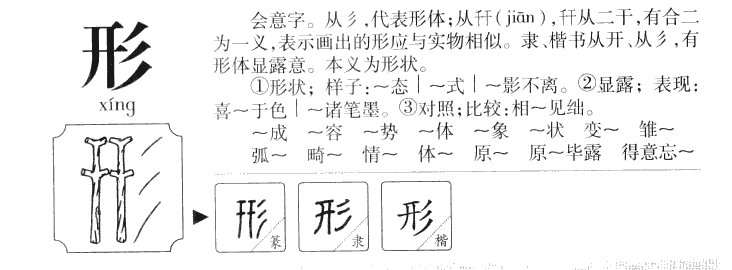 形
xíng
会意字。从彡,代表形体;从幵(jiān),幵从二干,有合二
为一义,表示画出的形应与实物相似。隶、楷书从开、从彡,有
形体显露意。本义为形状。
①形状;样子:～态｜～式｜～影不离。②显露;表现:
喜～于色｜～诸笔墨。③对照;比较:相～见绌。
～成 ～容 ～势 ～体 ～象 ～状 变～ 雏～
弧～ 畸～ 情～ 体～ 原～ 原～毕露 得意忘～
形 篆 形 隶 形 楷